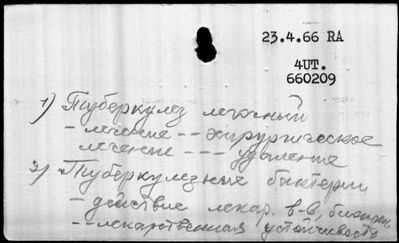 23.4.66 RA
4UT.
660209
1) Туберкулез легочный
- лечение -- хирургическое
лечение --- удаление
2) Туберкулезные бактерии
- действие лекар. в-в,
-- лекарственная устойчивость